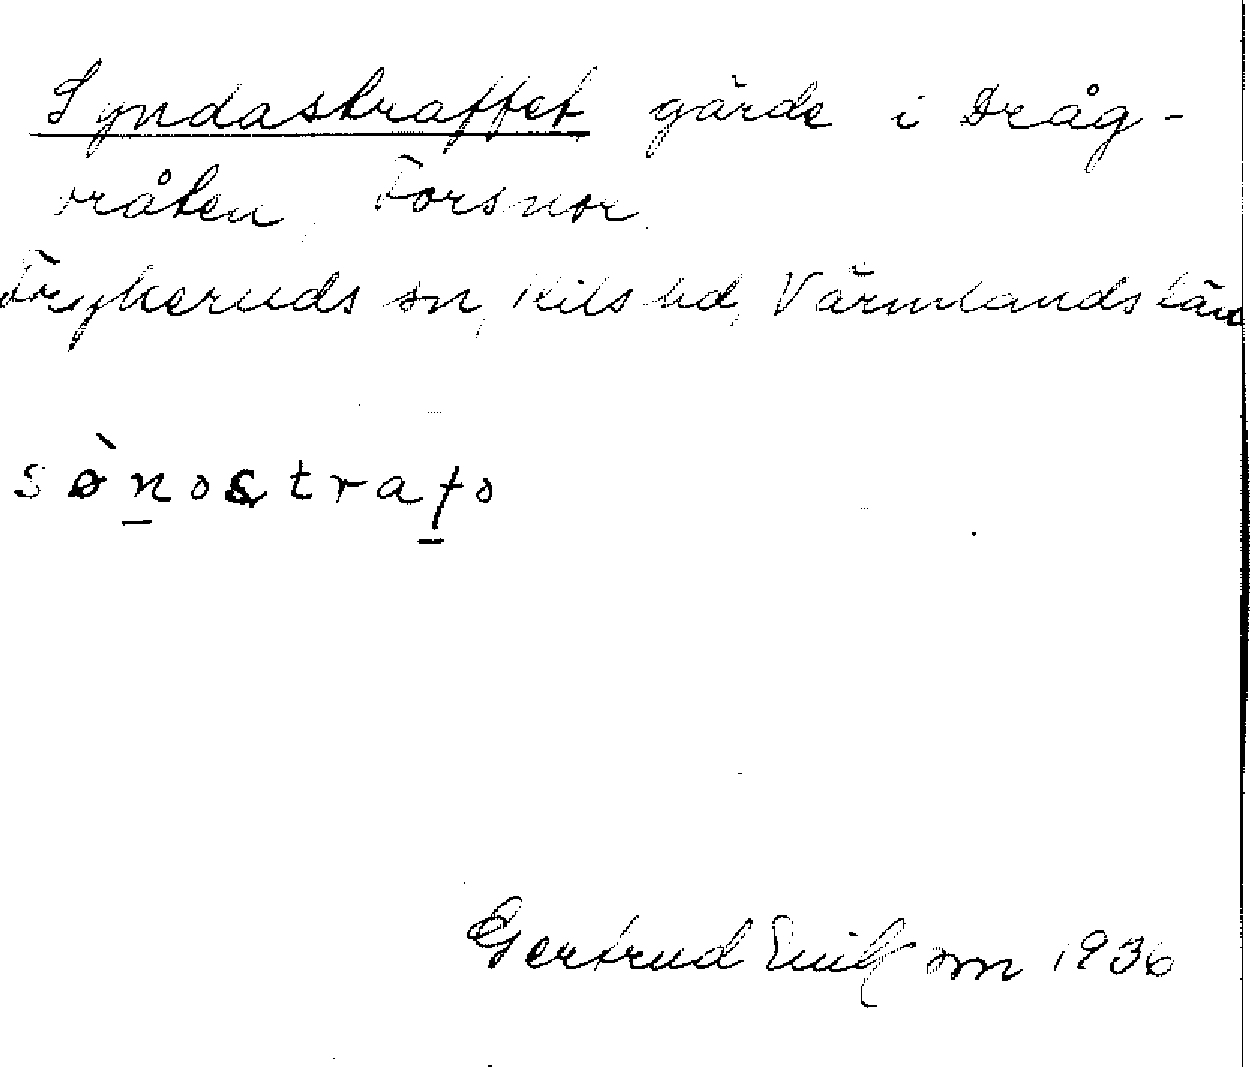 Syndastraffet gärde i Dråg-
tråten, Forsnor
Frykeruds sn, Kils hd, Värmlands län
sø̀nostrafo
Gertrud 1936